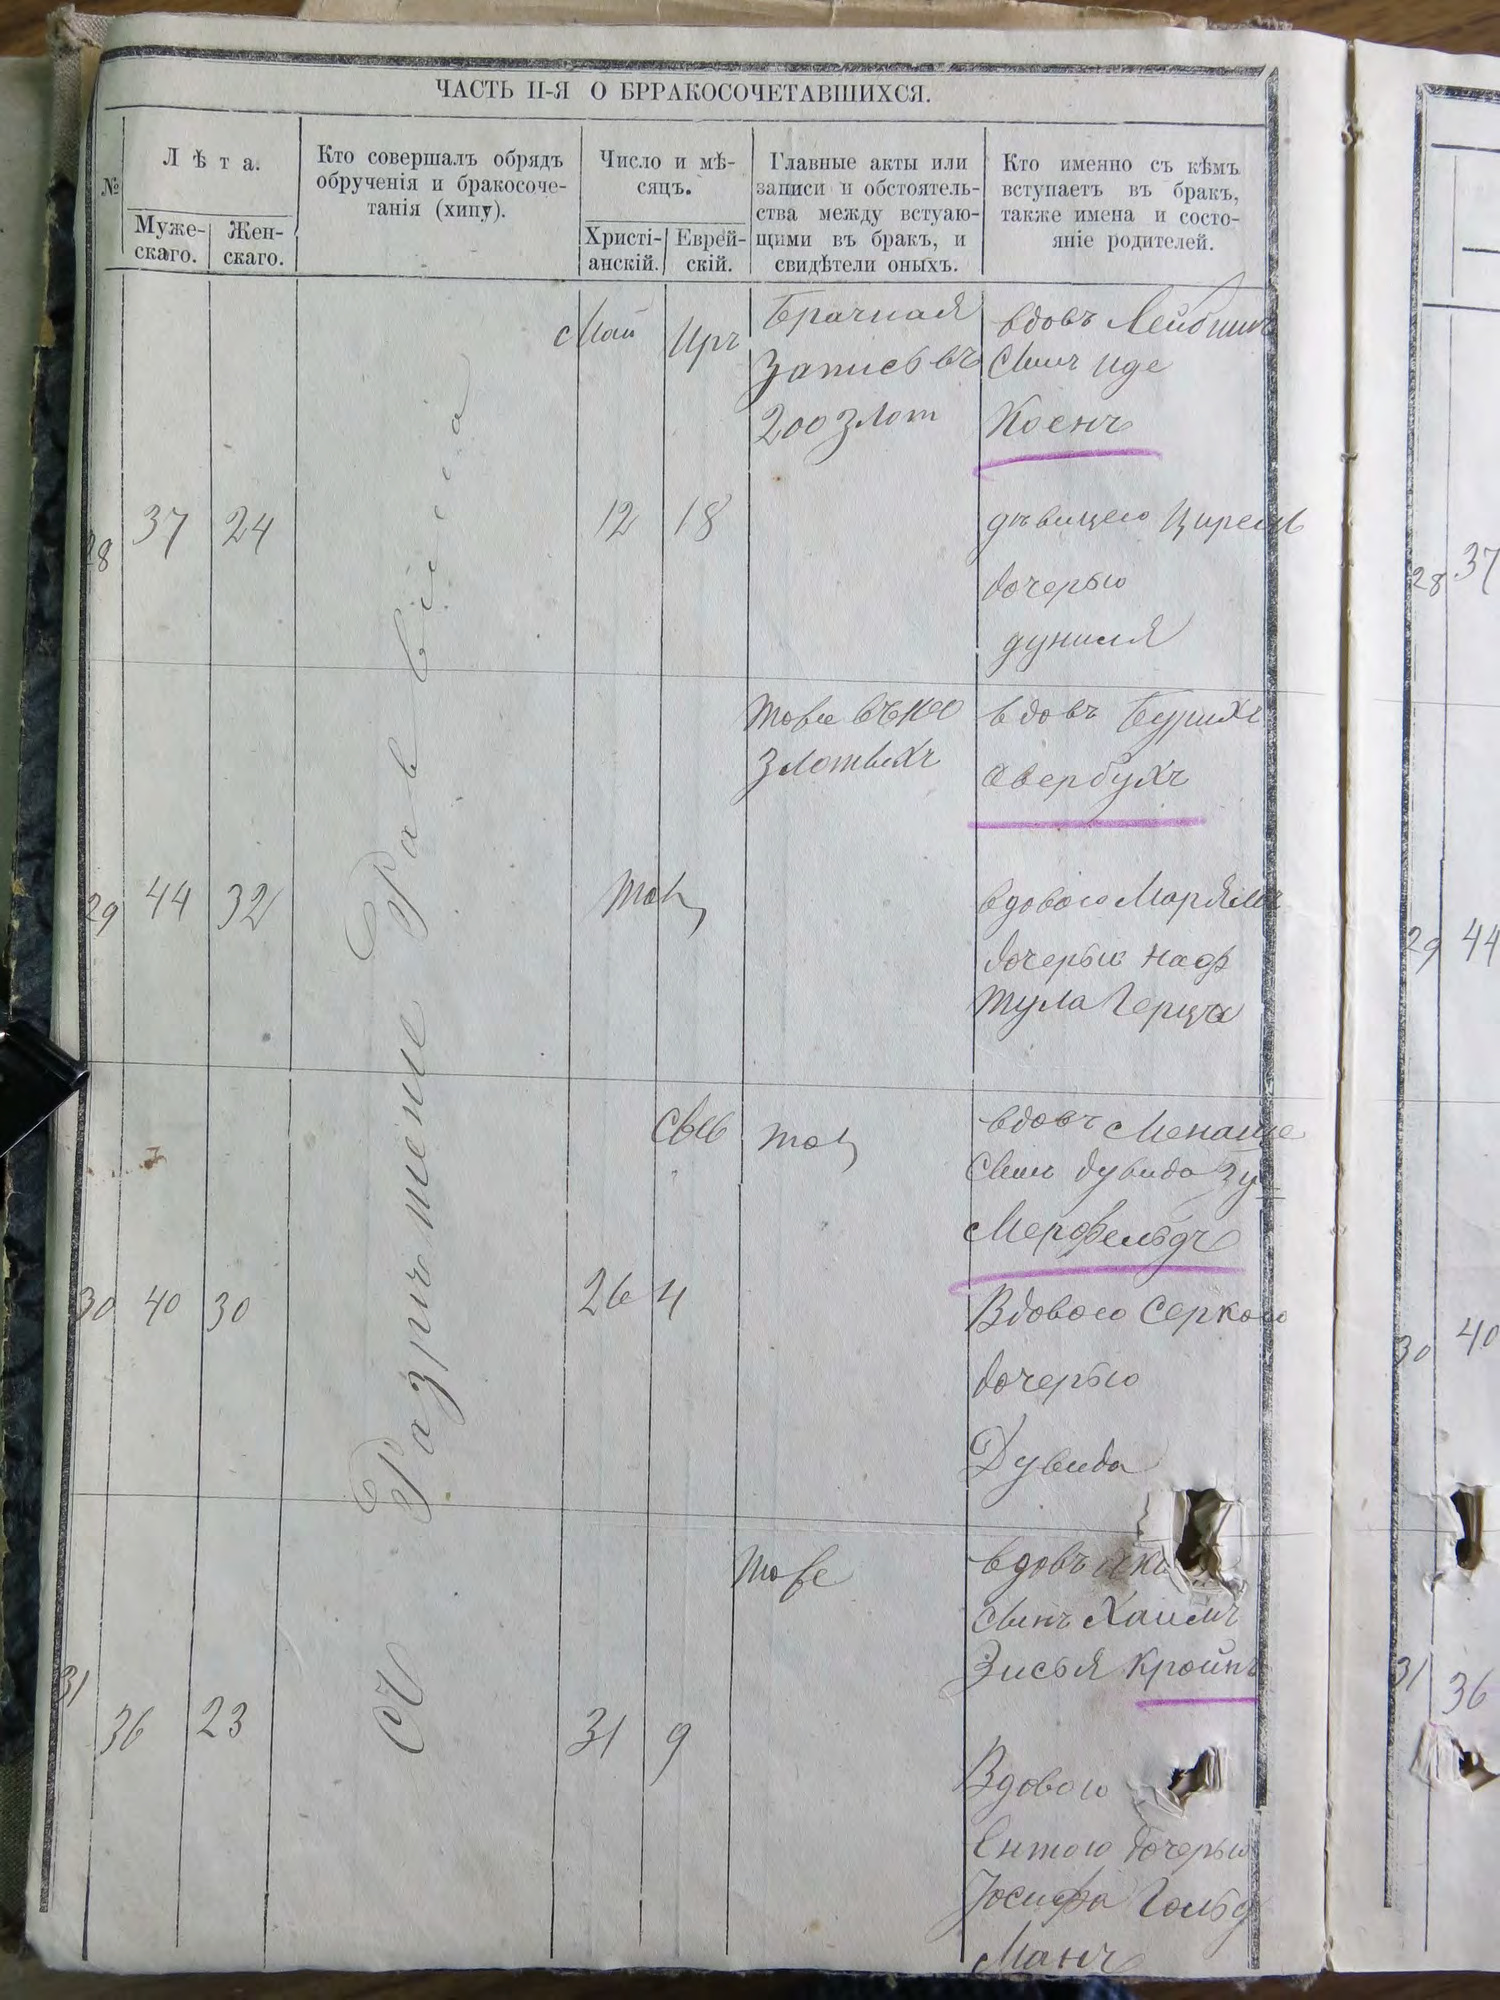 ЧАСТЬ II-Я О БРРАКОСОЧЕТАВШИХСЯ.
№
Лѣта.
Муже-
скаго.
Жен-
скаго.
Кто совершалъ обрядъ
обрученія и бракосоче-
танія (хипу).
Число и мѣ-
сяцъ.
Христі-
анскій.
Еврей-
скій.
Главные акты или
записи и обстоятель-
ства между встуаю-
щими въ бракъ, и
свидѣтели оныхъ.
Кто именно съ кѣмъ
вступаетъ въ бракъ,
также имена и состо-
яніе родителей.
Съ Разрѣшеніе Раввина
28
37
24
Май
Иръ
12
18
Брачная
Запись въ
200 злот
вдовъ
Сынъ Иде
Коенъ
дѣвицею
дочерью
29
44
32
тоже
злотыхъ
вдовъ
Авербухъ
вдовою Марямъ
дочерью Наф
тула Герцъ
30
40
30
26
4
вдовъ Менаше
Сынъ Дувида
Мерфельдъ
Вдовою Серкою
дочерью
Дувида
31
36
23
31
9
тоже
вдовъ
сынъ Хаимъ
Зисья
Вдовою
Ентою дочерью
Іосифа Гольд
Манъ
28
37
29
44
30
40
31
36